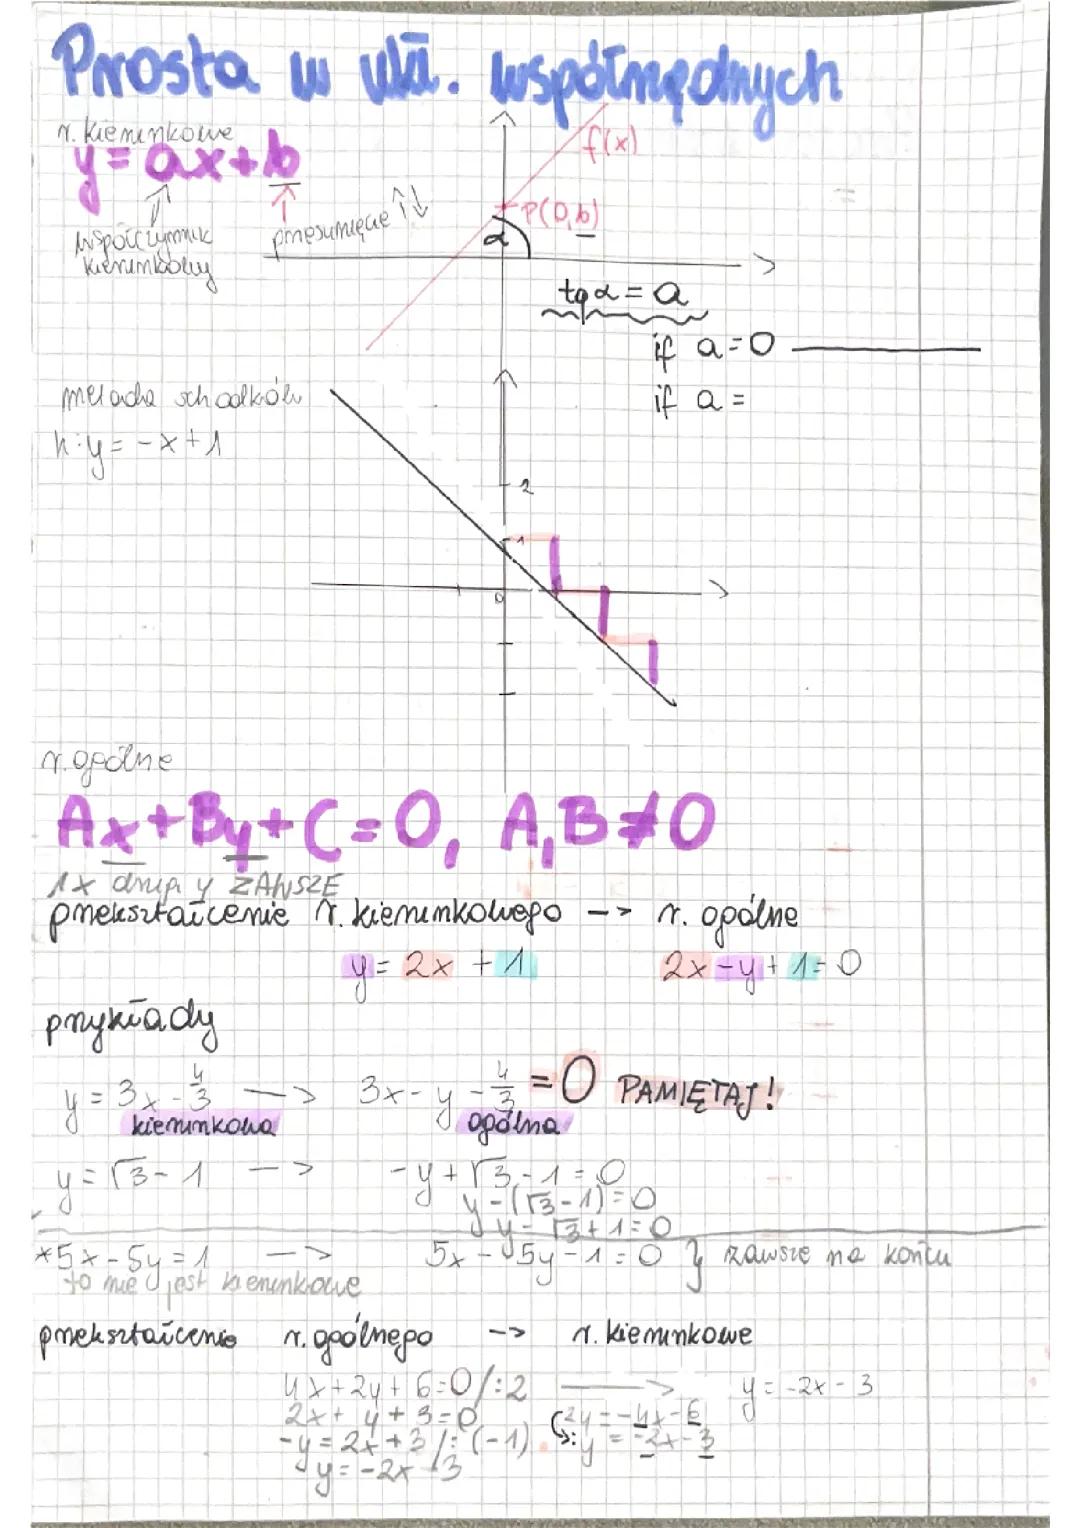 Prosta w ukł. współrzędnych
r. kierunkowe
y = ax+b
f(x)
P(0,b)
współczynnik kierunkowy
przesunięcie ↑↓
α
tg α = a
if a=0
if a =
metoda schodków
k: y = -x+1
2
1
0
r. ogólne
Ax+By+C=0, A,B≠0
1x drugi y ZAWSZE
przekształcenie r. kierunkowego --> r. ogólne
y = 2x + 1 2x - y + 1 = 0
przykłady
y = 3x - 4/3 —> 3x - y - 4/3 = 0 PAMIĘTAJ!
kierunkowa ogólna
y = √3 - 1 —> -y + √3 - 1 = 0
y - (√3 - 1) = 0
y - √3 + 1 = 0
*5x - 5y = 1 —> 5x - 5y - 1 = 0 } zawsze na końcu
to nie jest kierunkowe
przekształcenie r. ogólnego --> r. kierunkowe
4x + 2y + 6 = 0 /:2 —> y = -2x - 3
2x + y + 3 = 0 2y = -4x - 6
-y = 2x + 3 /: (-1) : y = -2x - 3
y = -2x - 3